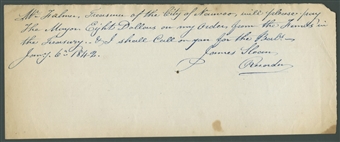 Mr. Falmer, Treasurer of the City of will please pay
The Mayor Eight Dollars on my order from the Funds in
the Treasury & I shall Call on you for the Bal.
Jany. 6th 1842. James Slocum
Recorder